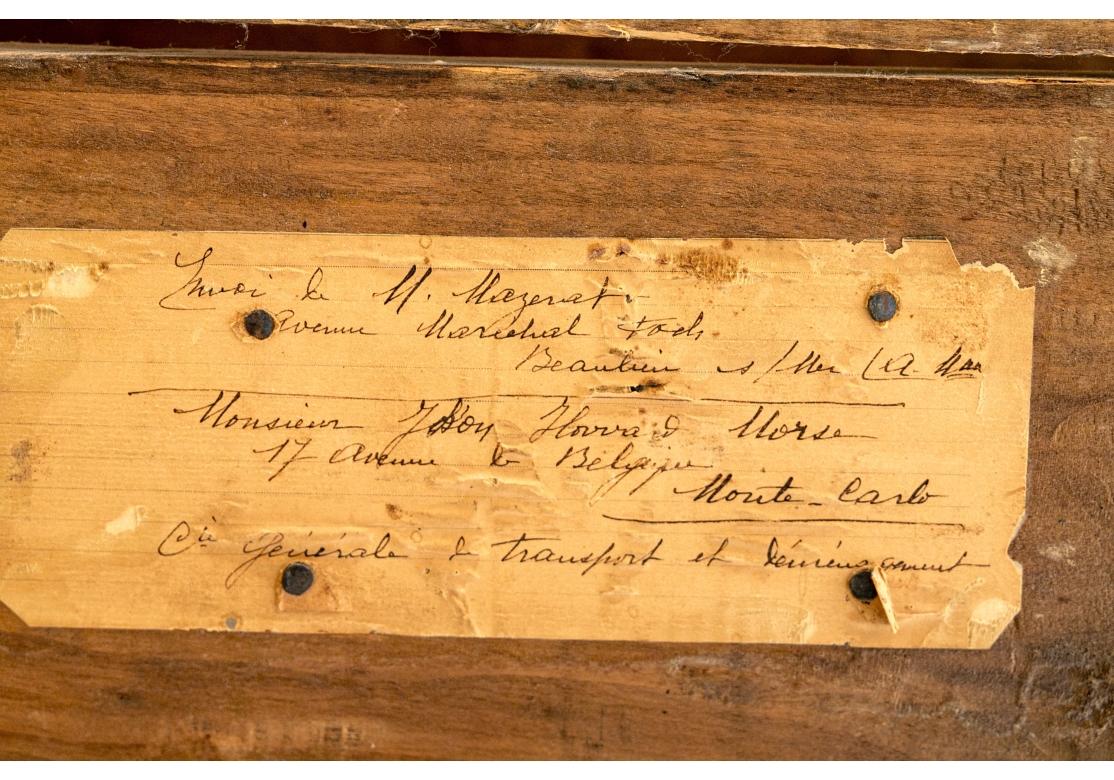 Envoi de M. Mazerat
Avenue Marechal Foch
Beaulieu s/Mer (A. Mmes
Monsieur Howard Morse
17 Avenue de Belgique
Monte-Carlo
Cie Générale de transport et déménagement